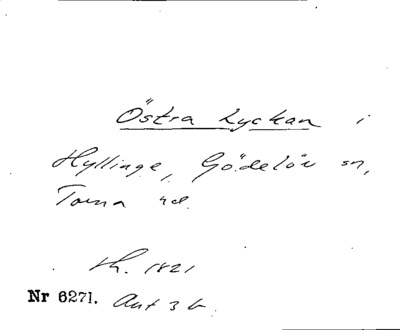 Östra Lyckan i
Hyllinge, Gödelöv sn,
Torna hd.
Th. 1821
Nr 6271. Avt 3 b.